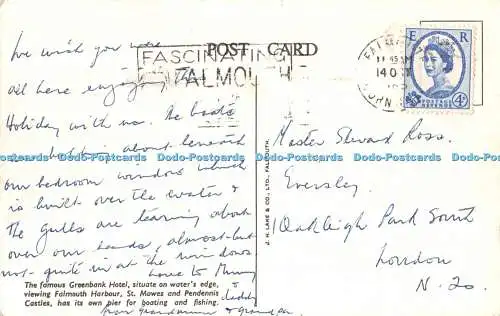 POST CARD
FASCINATING
FALMOUTH
E R
POSTAGE
4D
11 45 AM
14 OC
We wish you were
all here enjoying the
Holiday with us. The boats
are bobbing about beneath
our bedroom window which
is built over the water &
The Gulls are tearing about
over our heads, almost-but
not-quite in at the windows
Love to Mummy
& Daddy
from Grandmama & Grandpa
Master Steward Ross.
Eversley
Oakleigh Park South
London
N. 20
J. H. LAKE & CO., LTD., FALMOUTH.
The famous Greenbank Hotel, situate on water's edge,
viewing Falmouth Harbour, St. Mawes and Pendennis
Castles, has its own pier for boating and fishing.
Dodo-Postcards Dodo-Postcards Dodo-Postcards Dodo-Postcards Dodo-Postcards Dodo-Postcards